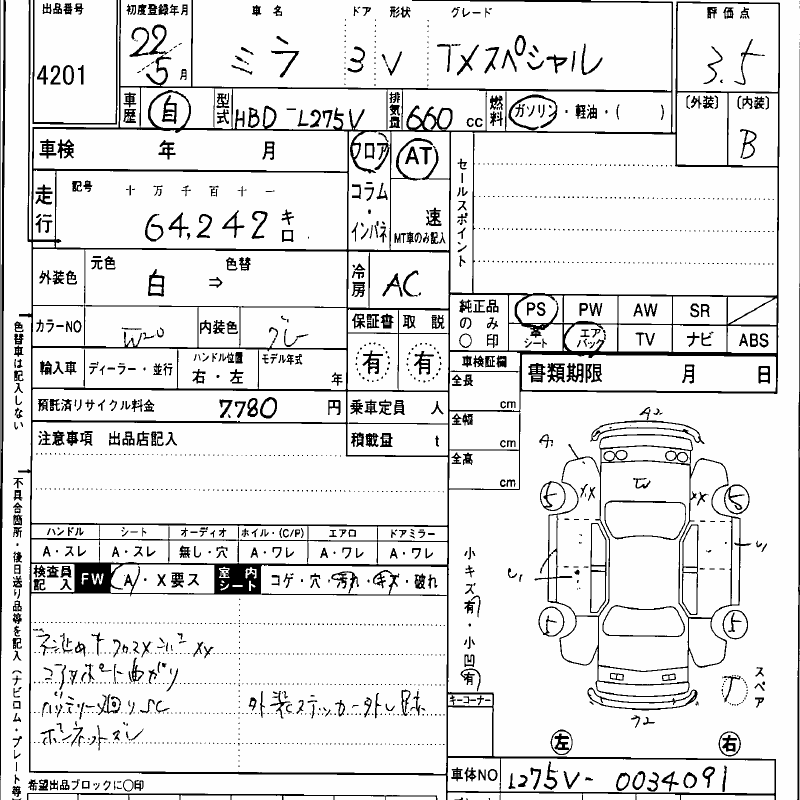 出品番号
4201
初度登録年月
22/5月
車名
ミラ
ドア
3
形状
V
グレード
TXスペシャル
評価点
3.5
〔外装〕 〔内装〕
B
車歴 自
型式 HBD-L275V
排気量 660 cc
燃料 ガソリン・軽油・( )
車検 年 月
フロア
コラム・インパネ
AT
速
MT車のみ記入
セールスポイント
走行
記号 十万千百十一
64,242 キロ
外装色
元色 白 ⇒ 色替
冷房 AC
カラーNO W20
内装色 グレー
保証書 取説
有 有
純正品のみ〇印
PS PW AW SR
室内シート エアバック TV ナビ ABS
輸入車 ディーラー・並行
ハンドル位置
右・左
モデル年式
年
車検証欄
全長 cm
全幅 cm
全高 cm
書類期限 月 日
預託済リサイクル料金 7,780 円
乗車定員 人
積載量 t
注意事項 出品店記入
ハンドル シート オーディオ ホイル・(C/P) エアロ ドアミラー
A・スレ A・スレ 無し・穴 A・ワレ A・ワレ A・ワレ
検査員記入 FW A・X要ス
室内シート コゲ・穴・汚れ・キズ・破れ
コアサポート曲がり
バッテリー廻りSC
外装ステッカー外し跡
ボンネットズレ
小キズ有・小凹有
キーコーナー
A2
W
XX XX
5 5
5 5
U1
U1
スペア
T
左 右
車体NO L275V-0034091
希望出品ブロックに〇印
色替車は記入しない
不具合箇所・後日送り品等を記入(ナビロム・プレート等)